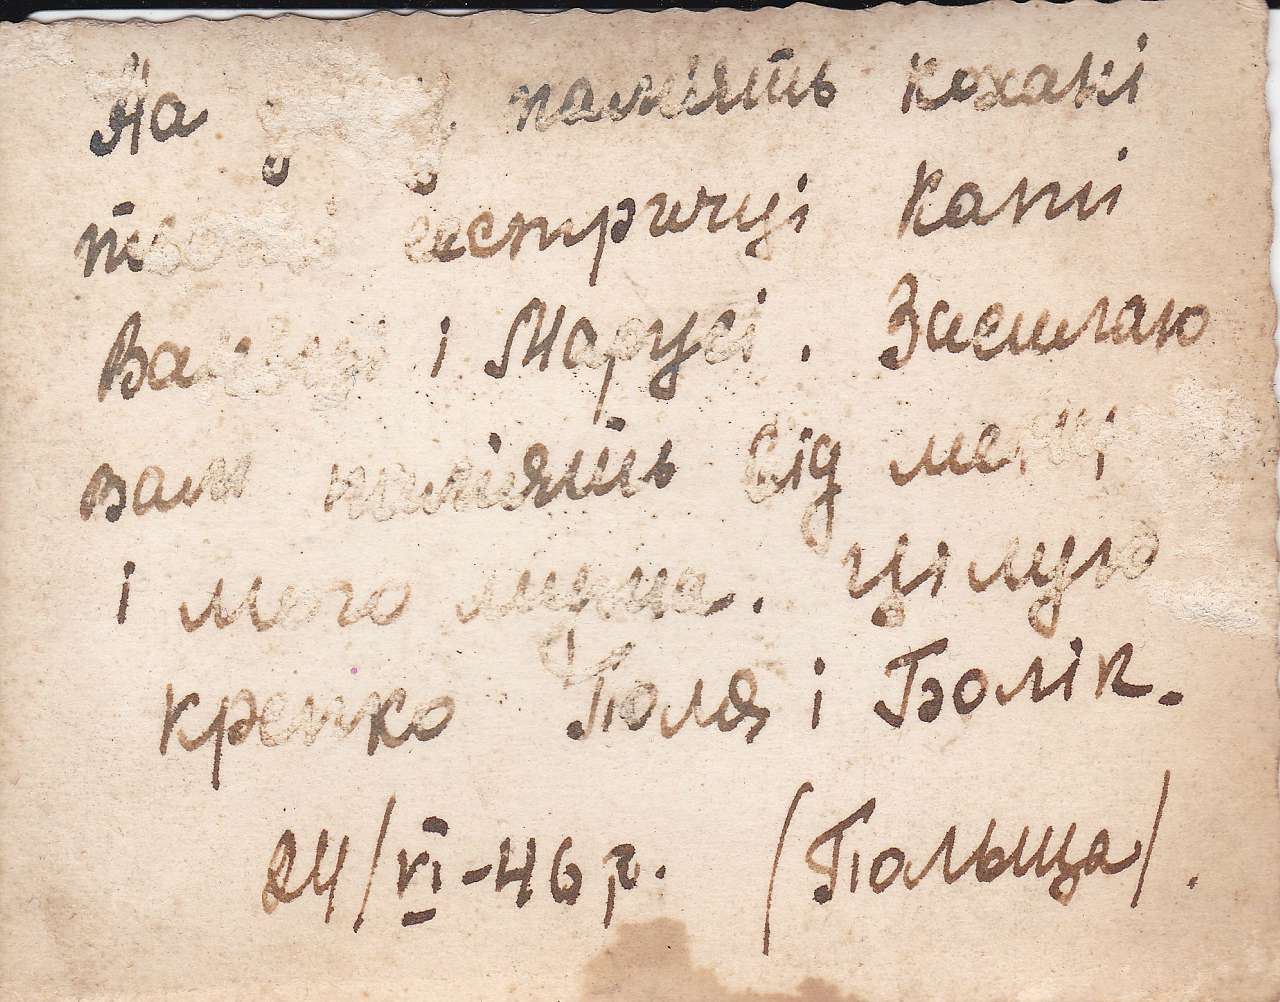 На памʼять кохані
сестричці Капи
і Марусі. Засилаю
вам памʼять від мене
і мого мужа. Цілую
крепко Поля і Болік.
24/VI-46 р. (Польща).